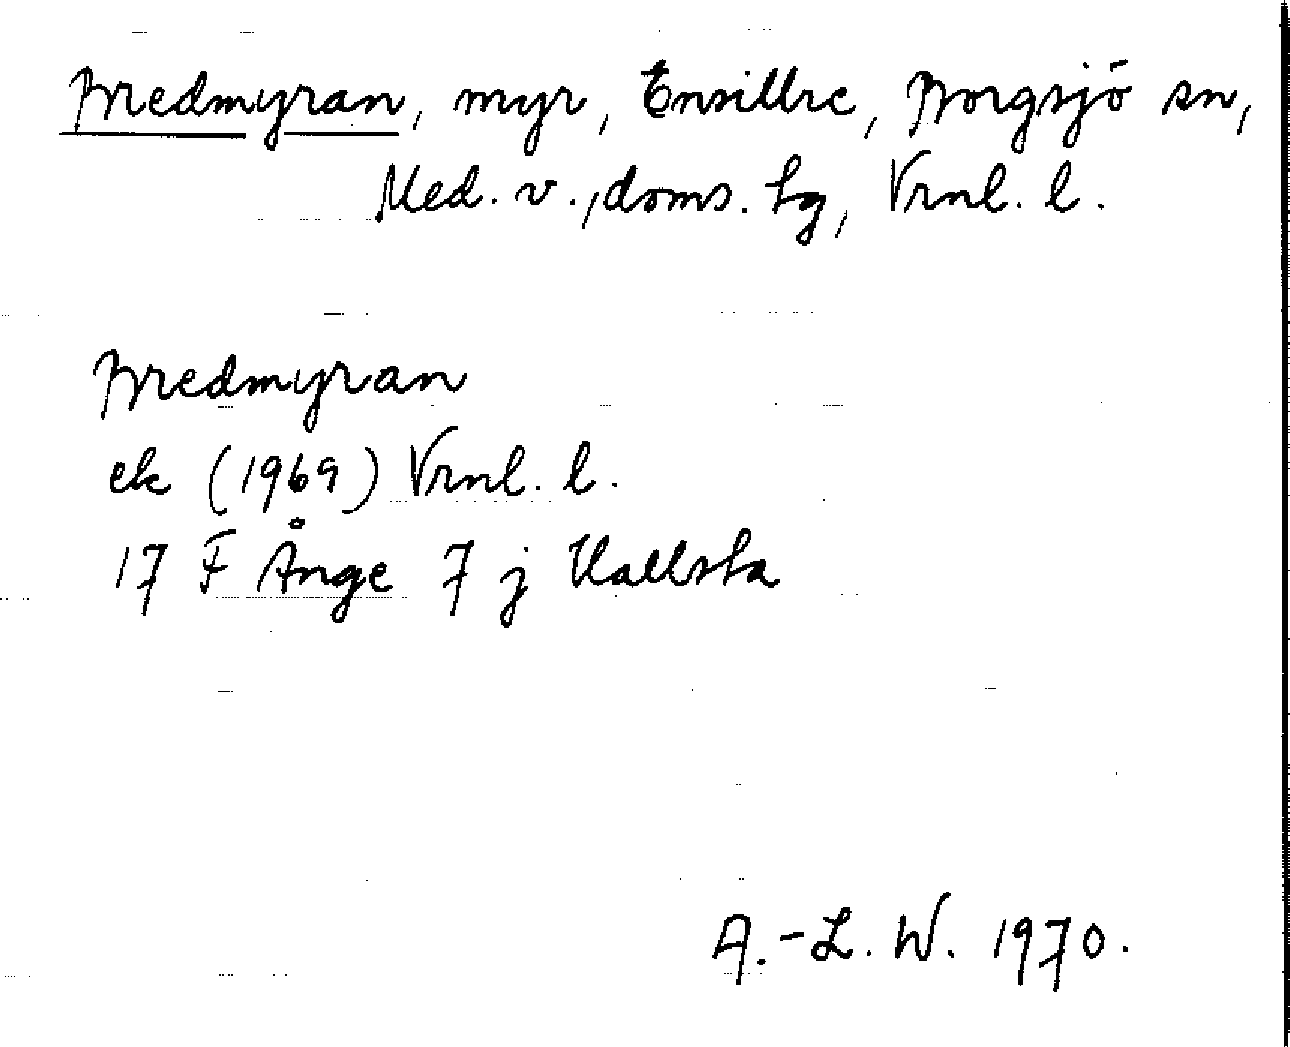 Bredmyran, myr, Ensillre, Borgsjö sn,
Med. v., doms. tg, Vrnl. l.
Bredmyran
ek (1969) Vrnl. l.
17 F Ånge 7 j Hallsta
A.-L. W. 1970.